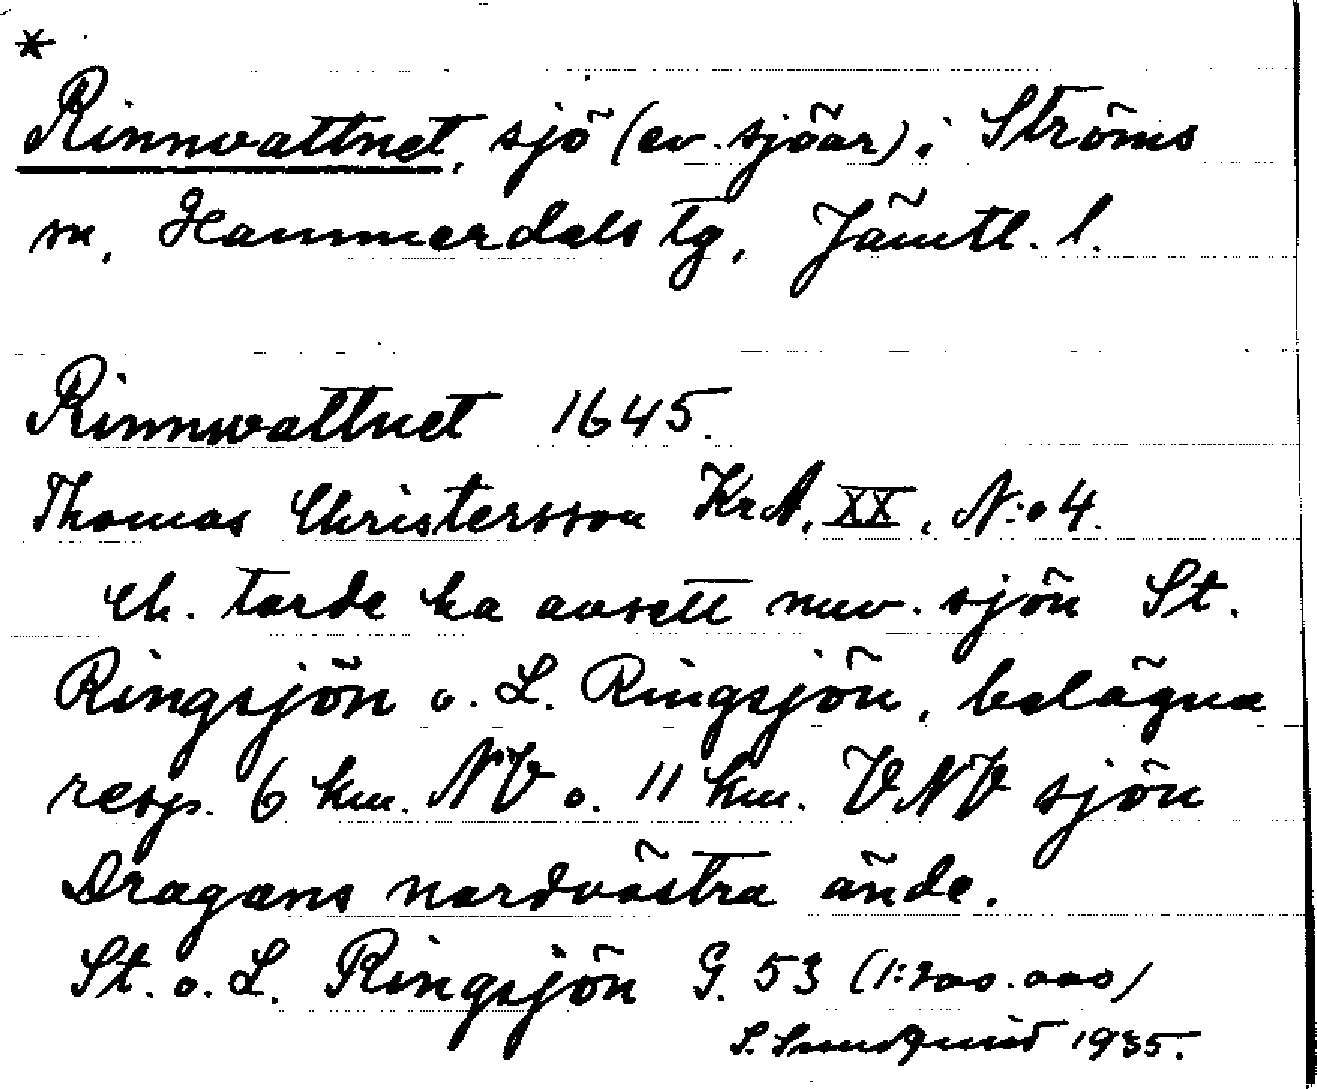 *
Rinnwattnet, sjö (ev. sjöar) i Ströms
sn, Hammerdals tg, Jämtl. l.
Rinnwattnet 1645.
Thomas Christersson KrA, XX, N:o 4.
Ch. torde ha avsett nuv. sjön St.
Ringsjön o. L. Ringsjön, belägna
resp. 6 km. NV o. 11 km. VNV sjön
Dragans nordvästra ände.
St. o. L. Ringsjön G. 53 (1:200.000)
S. Sundquist 1935.